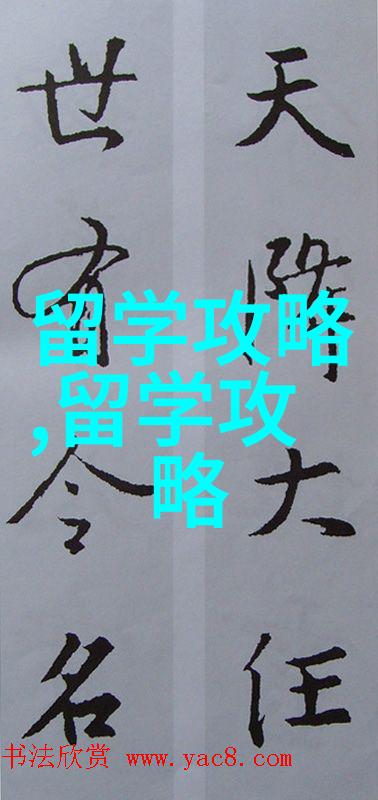 天降大任
世有令名
留学攻略
,留学攻
略
书法欣赏 www.yac8.com